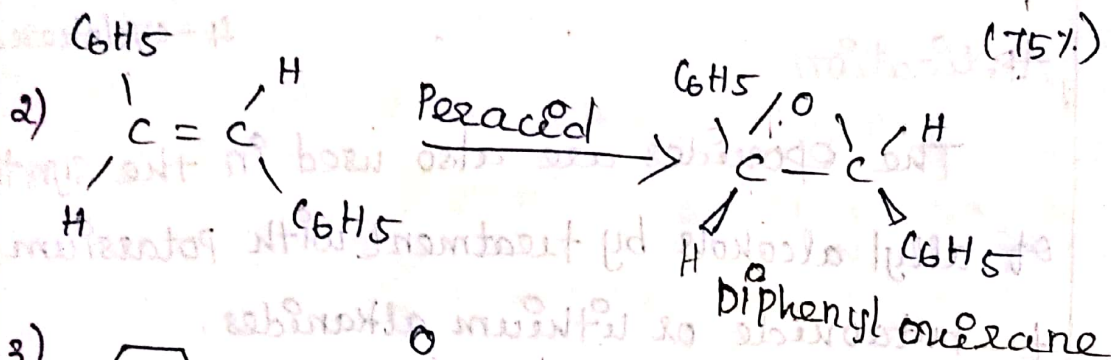 (75%)
2) C6H5 H C = C H C6H5 Peracid C6H5 O H C — C H C6H5
Diphenyl oxirane
3) O